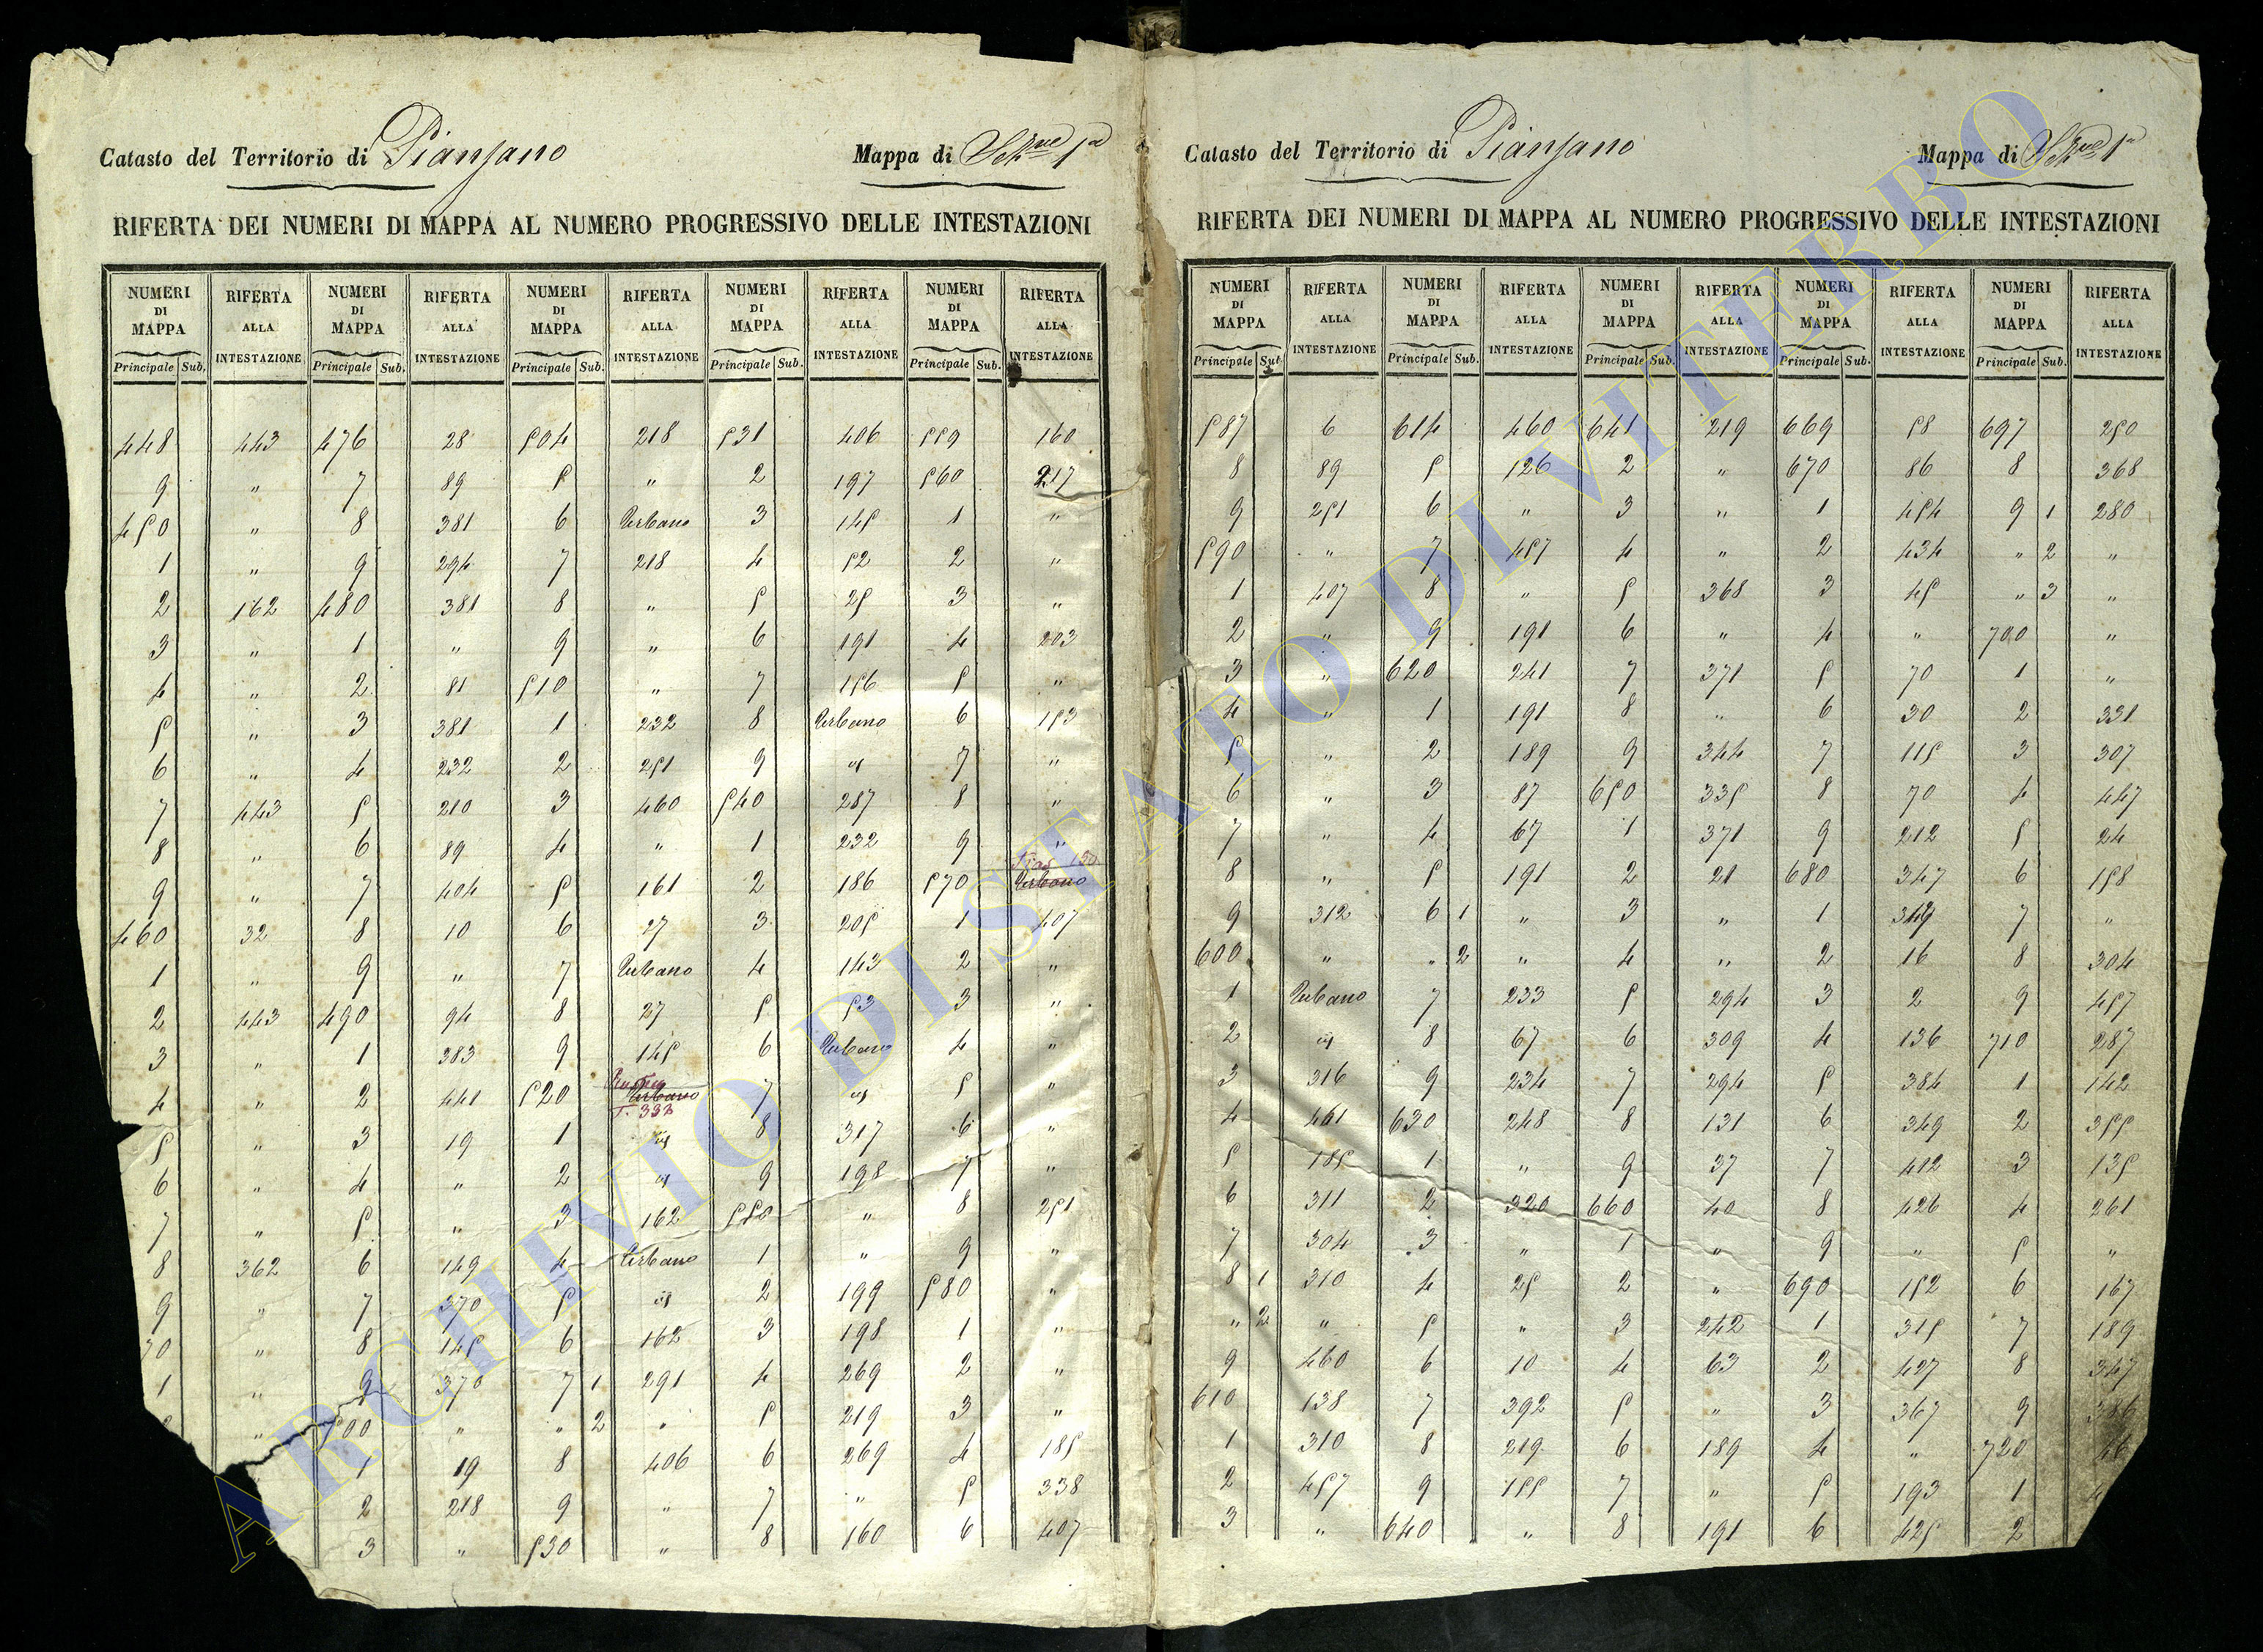 Catasto del Territorio di Pianzano Mappa di Sezne 1a
RIFERTA DEI NUMERI DI MAPPA AL NUMERO PROGRESSIVO DELLE INTESTAZIONI
NUMERI RIFERTA NUMERI RIFERTA NUMERI RIFERTA NUMERI RIFERTA NUMERI RIFERTA
DI DI DI DI DI
MAPPA ALLA MAPPA ALLA MAPPA ALLA MAPPA ALLA MAPPA ALLA
Principale Sub. INTESTAZIONE Principale Sub. INTESTAZIONE Principale Sub. INTESTAZIONE Principale Sub. INTESTAZIONE Principale Sub. INTESTAZIONE
448 443 476 28 504 218 531 406 559 160
9 " 7 89 5 " 2 197 560 217
450 " 8 381 6 Urbano 3 145 1 "
1 " 9 294 7 218 4 52 2 "
2 162 480 381 8 " 5 25 3 "
3 " 1 " 9 " 6 191 4 203
4 " 2 81 510 " 7 156 5 "
5 " 3 381 1 232 8 Urbano 6 153
6 " 4 232 2 251 9 id 7 "
7 443 5 210 3 460 540 287 8 "
8 " 6 89 4 " 1 232 9 "
9 " 7 404 5 161 2 186 570 Urbano
460 32 8 10 6 27 3 205 1 407
1 " 9 " 7 Urbano 4 143 2 "
2 443 490 94 8 27 5 53 3 "
3 " 1 383 9 145 6 Urbano 4 "
4 " 2 441 520 Rustico Urbano T. 332 7 id 5 "
5 " 3 19 1 id 8 317 6 "
6 " 4 " 2 id 9 198 7 "
7 " 5 " 3 162 550 " 8 251
8 362 6 149 4 Urbano 1 " 9 "
9 " 7 370 5 id 2 199 580 "
70 " 8 145 6 162 3 198 1 "
1 " 9 370 7 1 291 4 269 2 "
" 500 " " 2 " 5 219 3 "
1 19 8 406 6 269 4 185
2 218 9 " 7 " 5 338
3 " 530 " 8 160 6 407
Catasto del Territorio di Pianzano Mappa di Sezne 1a
RIFERTA DEI NUMERI DI MAPPA AL NUMERO PROGRESSIVO DELLE INTESTAZIONI
NUMERI RIFERTA NUMERI RIFERTA NUMERI RIFERTA NUMERI RIFERTA NUMERI RIFERTA
DI DI DI DI DI
MAPPA ALLA MAPPA ALLA MAPPA ALLA MAPPA ALLA MAPPA ALLA
Principale Sub. INTESTAZIONE Principale Sub. INTESTAZIONE Principale Sub. INTESTAZIONE Principale Sub. INTESTAZIONE Principale Sub. INTESTAZIONE
587 6 614 460 641 219 669 58 697 250
8 89 5 126 2 " 670 86 8 368
9 251 6 " 3 " 1 454 9 1 280
590 " 7 457 4 " 2 434 " 2 "
1 407 8 " 5 368 3 45 " 3 "
2 " 9 191 6 " 4 " 700 "
3 " 620 241 7 371 5 70 1 "
4 " 1 191 8 " 6 30 2 331
5 " 2 189 9 344 7 115 3 307
6 " 3 87 650 335 8 70 4 447
7 " 4 67 1 371 9 212 5 24
8 " 5 191 2 21 680 347 6 158
9 312 6 1 " 3 " 1 349 7 "
600 " " 2 " 4 " 2 16 8 304
1 Urbano 7 233 5 294 3 2 9 457
2 id 8 67 6 309 4 136 710 287
3 316 9 234 7 294 5 384 1 142
4 461 630 248 8 131 6 349 2 355
5 185 1 " 9 37 7 412 3 135
6 311 2 320 660 40 8 426 4 261
7 304 3 " 1 " 9 " 5 "
8 1 310 4 25 2 " 690 152 6 167
" 2 " 5 " 3 242 1 315 7 189
9 460 6 10 4 63 2 427 8 347
610 138 7 392 5 " 3 367 9 386
1 310 8 219 6 189 4 " 720
2 457 9 155 7 " 5 193 1
3 " 640 " 8 191 6 425 2
ARCHIVIO DI STATO DI VITERBO